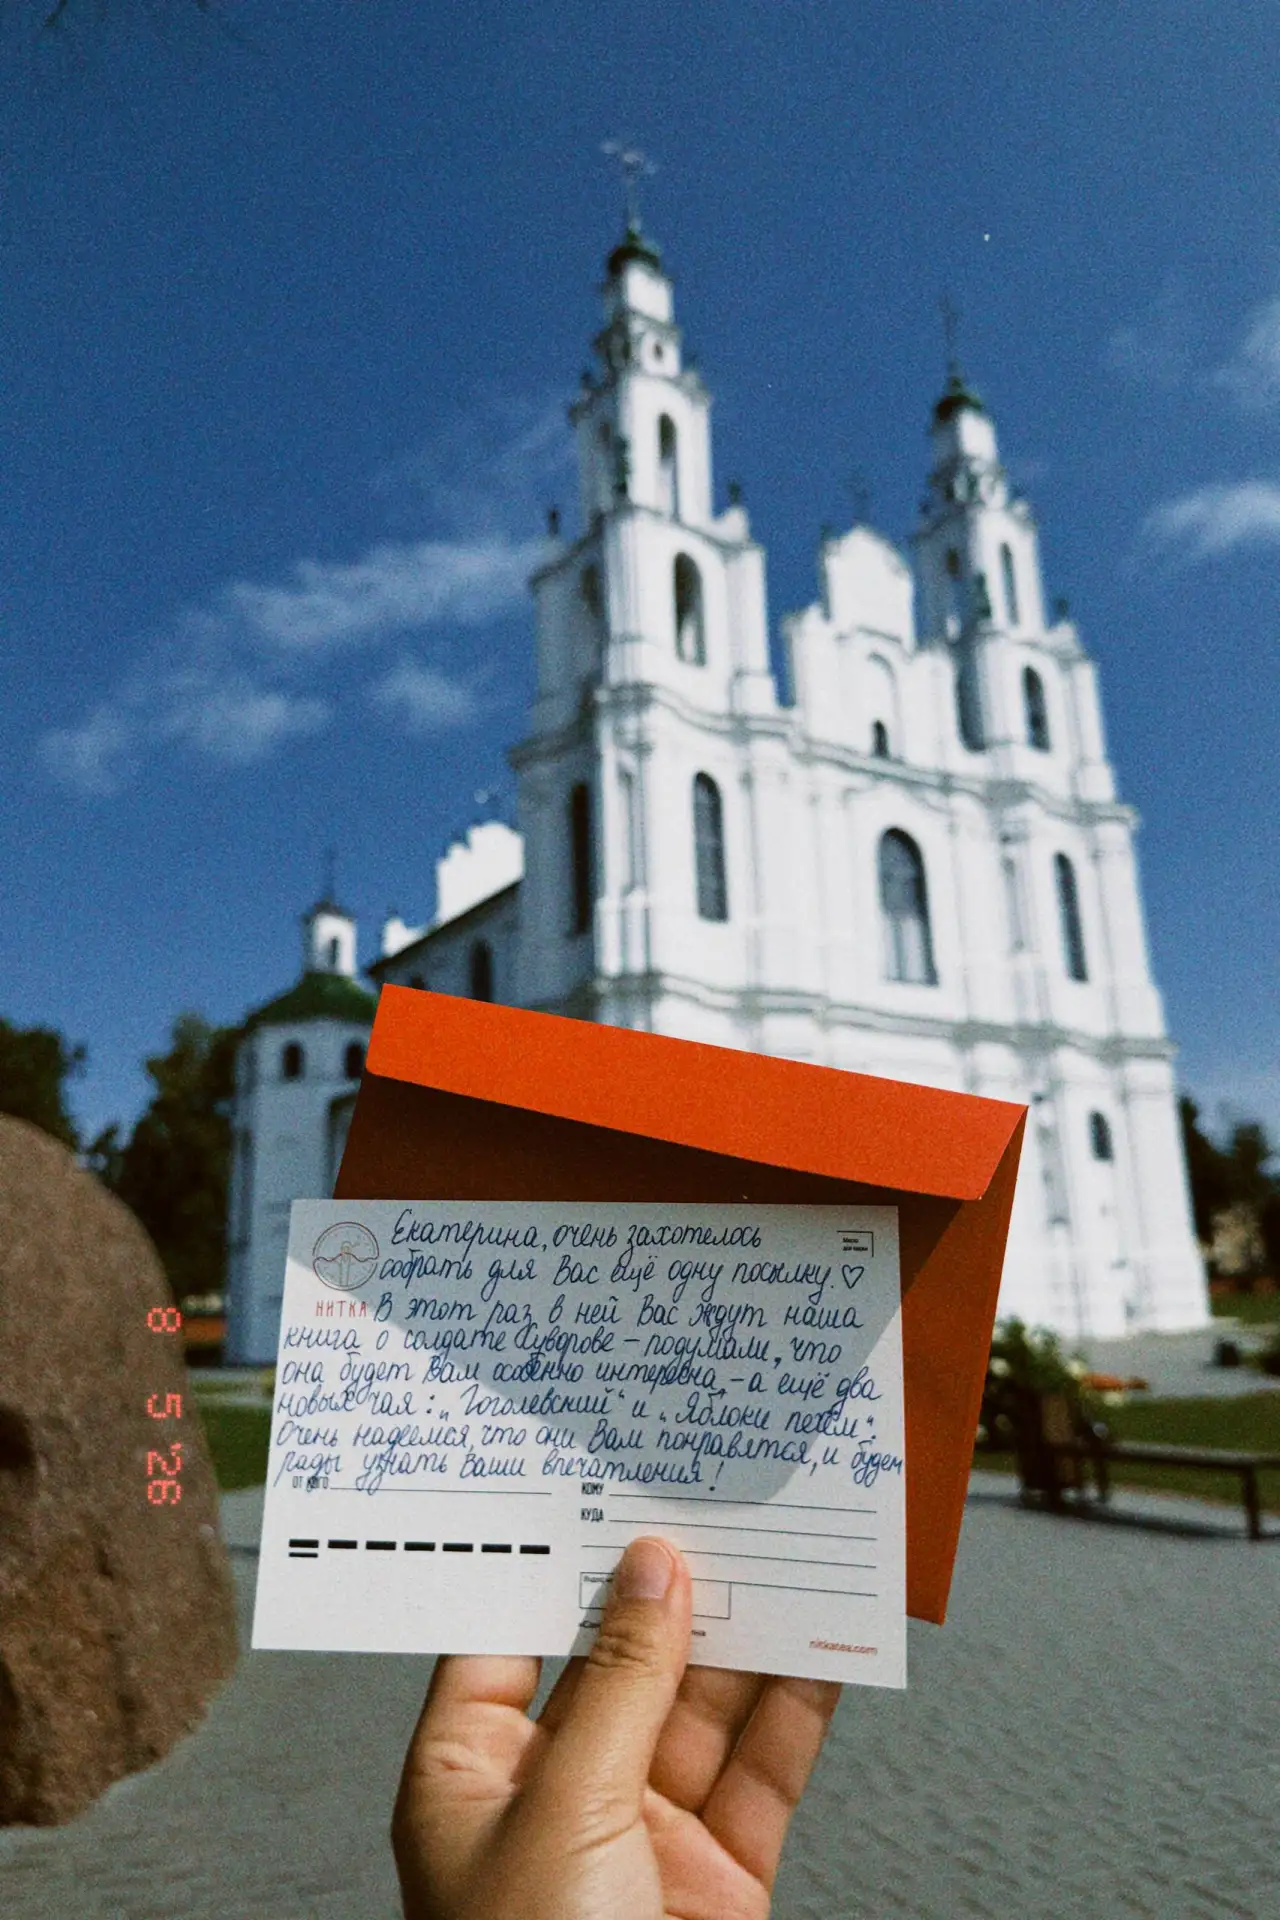 Екатерина, очень захотелось
собрать для Вас ещё одну посылку. ♡
Место
для марки
НИТКА
В этот раз в ней Вас ждут наша
книга о солдате Суворове – подумали, что
она будет Вам особенно интересна, – а ещё два
новых чая: „Гоголевский“ и „Яблоки печём“.
Очень надеемся, что они Вам понравятся, и будем
рады узнать Ваши впечатления!
ОТ КОГО
КОМУ
КУДА
nitkatea.com
8 5 '26